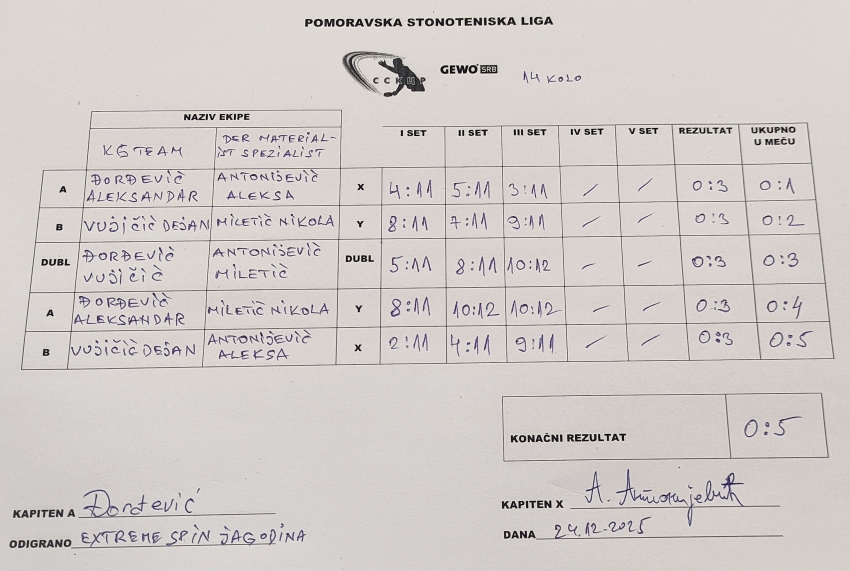 POMORAVSKA STONOTENISKA LIGA
CCKUP GEWO SRB 14 KOLO
NAZIV EKIPE
KG TEAM DER MATERIAL-IST SPEZIALIST I SET II SET III SET IV SET V SET REZULTAT UKUPNO U MEČU
A ĐORĐEVIĆ ALEKSANDAR ANTONIJEVIĆ ALEKSA X 4:11 5:11 3:11 / / 0:3 0:1
B VUJIČIĆ DEJAN MILETIĆ NIKOLA Y 8:11 7:11 9:11 / / 0:3 0:2
DUBL ĐORĐEVIĆ VUJIČIĆ ANTONIJEVIĆ MILETIĆ DUBL 5:11 8:11 10:12 - - 0:3 0:3
A ĐORĐEVIĆ ALEKSANDAR MILETIĆ NIKOLA Y 8:11 10:12 10:12 - - 0:3 0:4
B VUJIČIĆ DEJAN ANTONIJEVIĆ ALEKSA X 2:11 4:11 9:11 / / 0:3 0:5
KONAČNI REZULTAT 0:5
KAPITEN A Đorđević
KAPITEN X A. Антонијевић
ODIGRANO EXTREME SPIN JAGODINA
DANA 24.12.2025